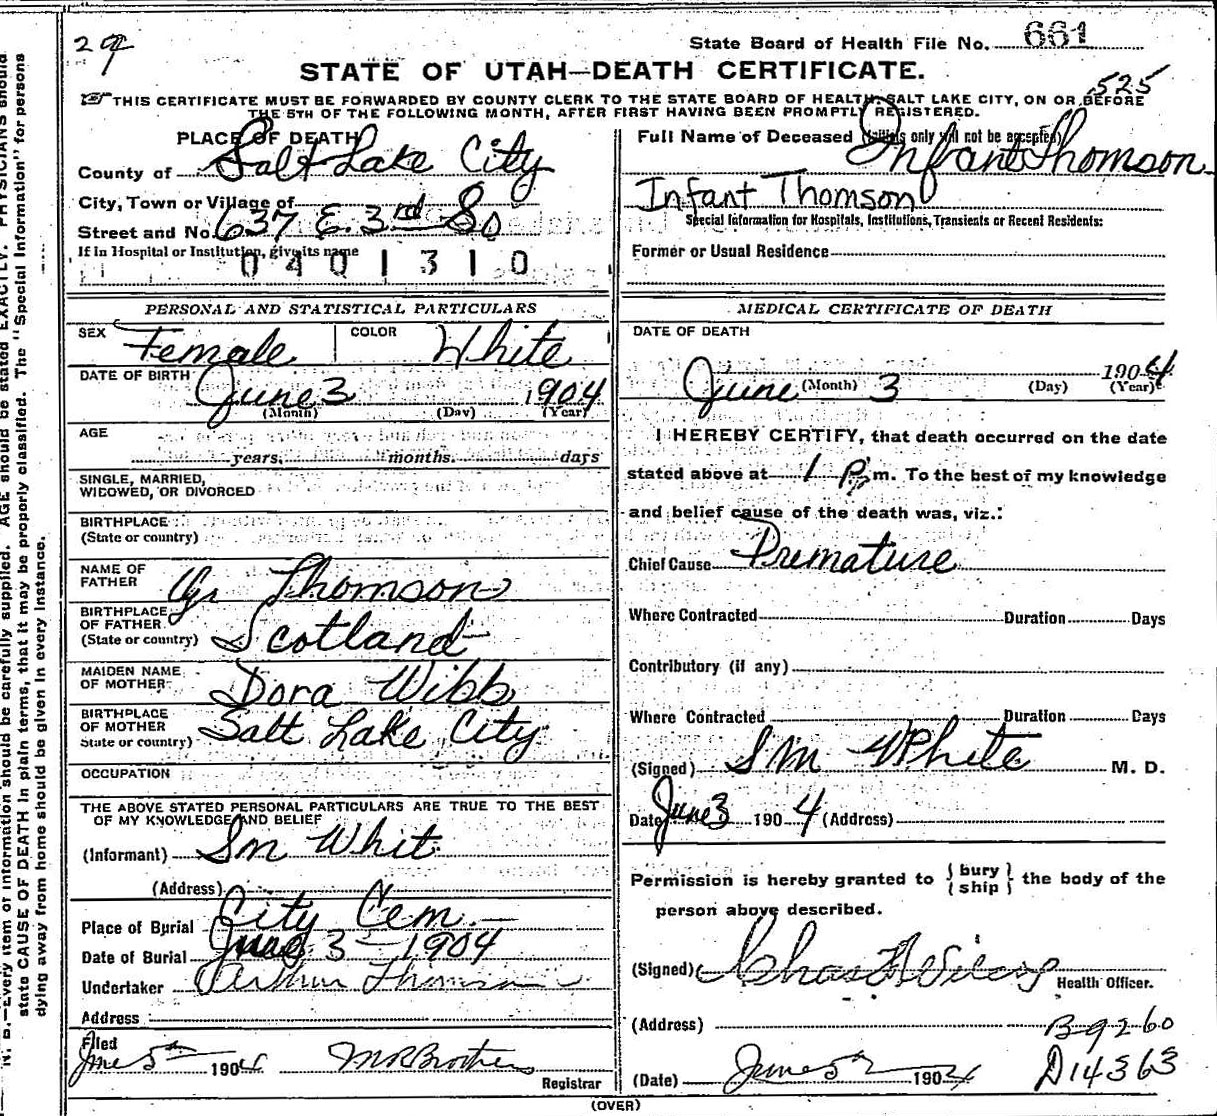 29
State Board of Health File No. 661
STATE OF UTAH—DEATH CERTIFICATE.
525
THIS CERTIFICATE MUST BE FORWARDED BY COUNTY CLERK TO THE STATE BOARD OF HEALTH, SALT LAKE CITY, ON OR BEFORE
THE 5TH OF THE FOLLOWING MONTH, AFTER FIRST HAVING BEEN PROMPTLY REGISTERED.
PLACE OF DEATH
County of Salt Lake City
City, Town or Village of
Street and No. 637 E. 3rd So
If in Hospital or Institution, give its name
0401310
Full Name of Deceased (Initials only will not be accepted)
Infant Thomson
Infant Thomson
Special Information for Hospitals, Institutions, Transients or Recent Residents:
Former or Usual Residence
PERSONAL AND STATISTICAL PARTICULARS
SEX Female COLOR White
DATE OF BIRTH June 3 1904
(Month) (Day) (Year)
AGE
years, months. days
SINGLE, MARRIED,
WIDOWED, OR DIVORCED
BIRTHPLACE
(State or country)
NAME OF
FATHER Thomson
BIRTHPLACE
OF FATHER.
(State or country) Scotland
MAIDEN NAME
OF MOTHER Dora Wibb
BIRTHPLACE
OF MOTHER
State or country) Salt Lake City
OCCUPATION
THE ABOVE STATED PERSONAL PARTICULARS ARE TRUE TO THE BEST
OF MY KNOWLEDGE AND BELIEF
(Informant) Sm Whit
(Address)
Place of Burial City Cem.
Date of Burial June 3 1904
Undertaker Arthur Thomson
Address
Filed
June 5th 1904 Brothers
Registrar
MEDICAL CERTIFICATE OF DEATH
DATE OF DEATH
June 3 1904
(Month) (Day) (Year)
I HEREBY CERTIFY, that death occurred on the date
stated above at 1 P. m. To the best of my knowledge
and belief cause of the death was, viz.:
Chief Cause Premature
Where Contracted Duration Days
Contributory (if any)
Where Contracted Duration Days
(Signed) S M White M. D.
Date June 3 1904 (Address)
Permission is hereby granted to { bury / ship } the body of the
person above described.
(Signed) Chas Health Officer.
(Address) B-9260
(Date) June 5 1904 D14363
(OVER)
N. B.—Every item of information should be carefully supplied. AGE should be stated EXACTLY. PHYSICIANS should
state CAUSE OF DEATH in plain terms, that it may be properly classified. The "Special Information" for persons
dying away from home should be given in every instance.